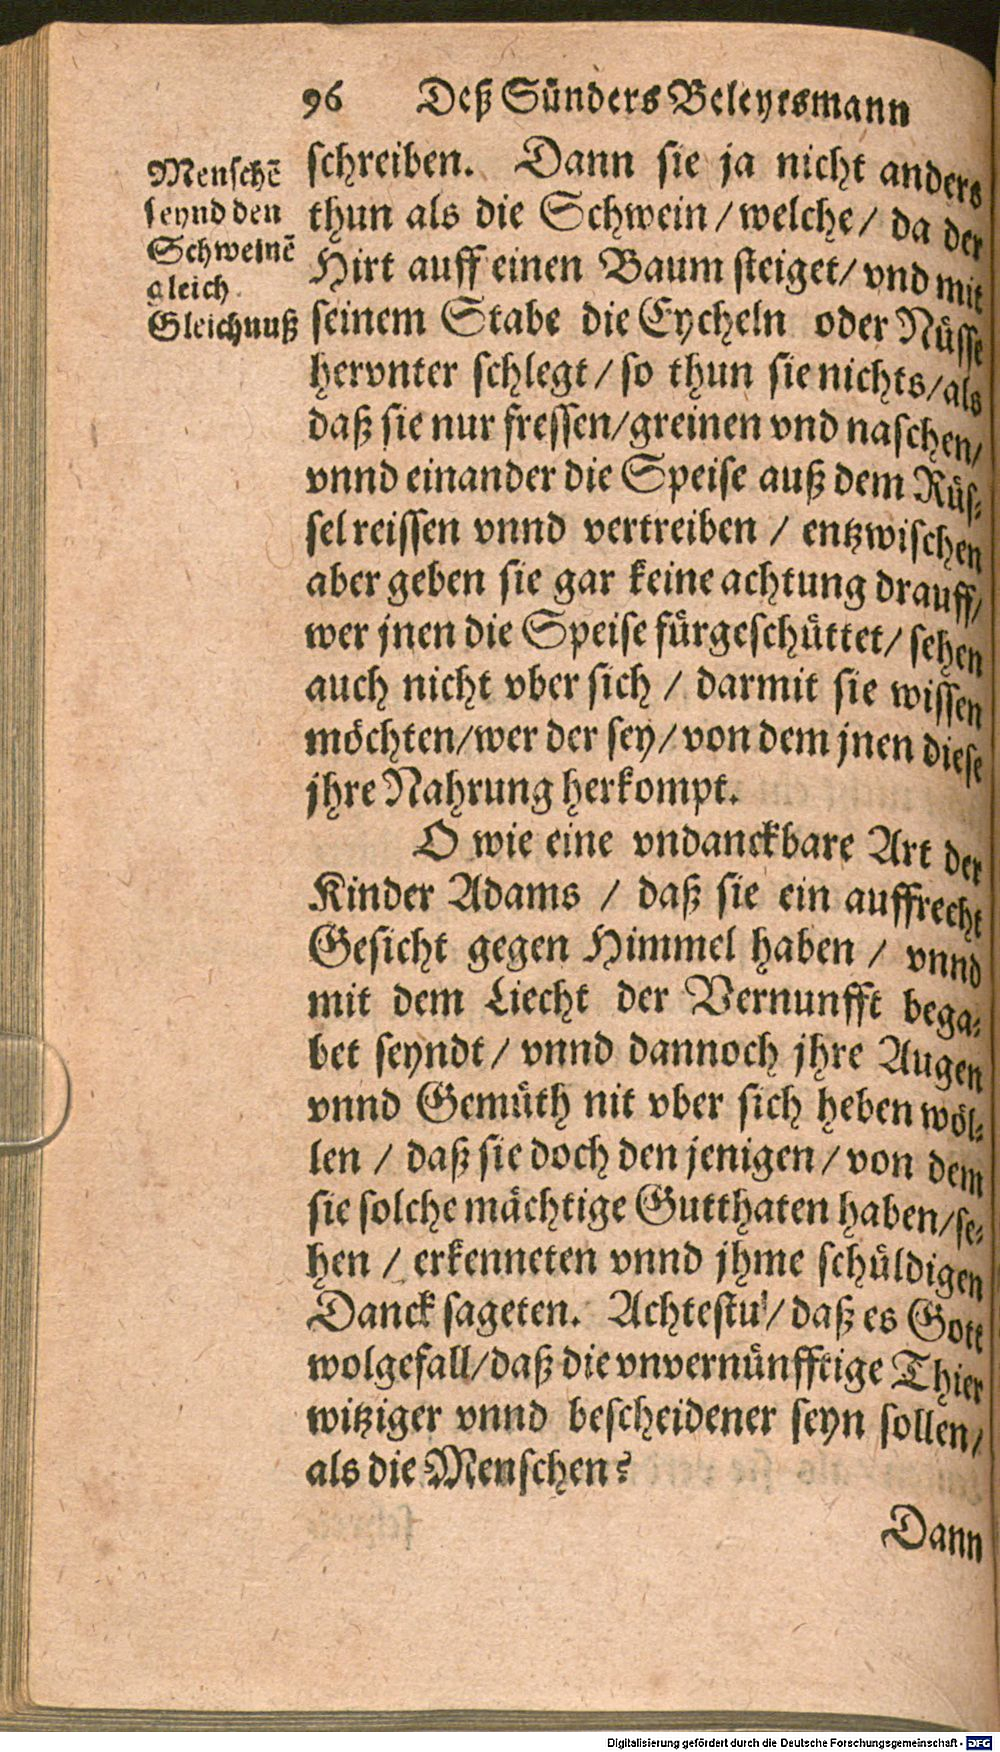 96 Deß Sünders Beleytsmann
Menschẽ
seynd den
Schweinẽ
gleich
Gleichnuß
schreiben. Dann sie ja nicht anders
thun als die Schwein / welche / da der
Hirt auff einen Baum steiget / vnd mit
seinem Stabe die Eycheln oder Nüsse
hervnter schlegt / so thun sie nichts / als
daß sie nur fressen / greinen vnd naschen /
vnnd einander die Speise auß dem Rüs-
sel reissen vnnd vertreiben / entzwischen
aber geben sie gar keine achtung drauff /
wer jnen die Speise fürgeschüttet / sehen
auch nicht vber sich / darmit sie wissen
möchten / wer der sey / von dem jnen diese
jhre Nahrung herkompt.
O wie eine vndanckbare Art der
Kinder Adams / daß sie ein auffrecht
Gesicht gegen Himmel haben / vnnd
mit dem Liecht der Vernunfft bega-
bet seyndt / vnnd dannoch jhre Augen
vnnd Gemüth nit vber sich heben wöl-
len / daß sie doch den jenigen / von dem
sie solche mächtige Gutthaten haben / se-
hen / erkenneten vnnd jhme schüldigen
Danck sageten. Achtestu / daß es Gott
wolgefall / daß die vnvernünfftige Thier
witziger vnnd bescheidener seyn sollen /
als die Menschen?
Dann
Digitalisierung gefördert durch die Deutsche Forschungsgemeinschaft - DFG